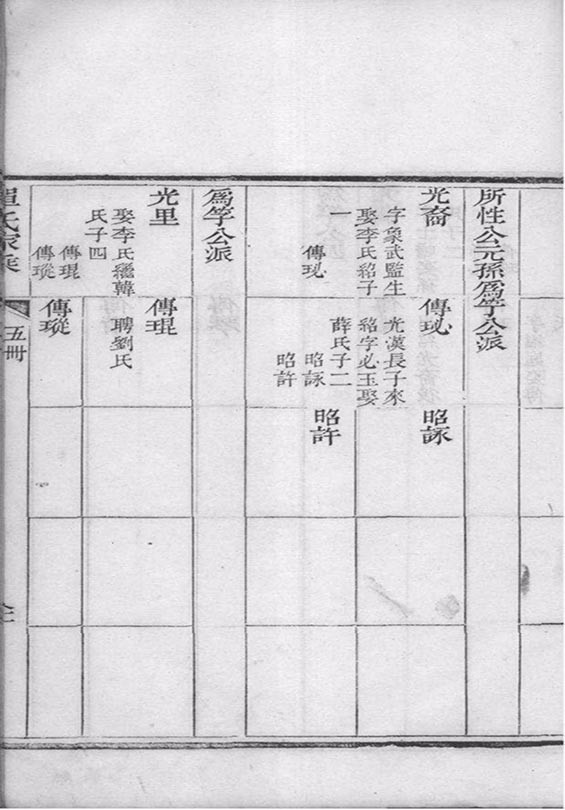 所性公元孫爲竽公派
光裔
傳珌
昭諑
字象武監生
娶李氏紹子
一
傳珌
光漢長子來
紹字必玉娶
薛氏子二
昭諑
昭許
昭許
爲竽公派
光里
傳琨
娶李氏繼韓
氏子四
傳琨
傳瑽
聘劉氏
傳瑽
氏家乘
五冊